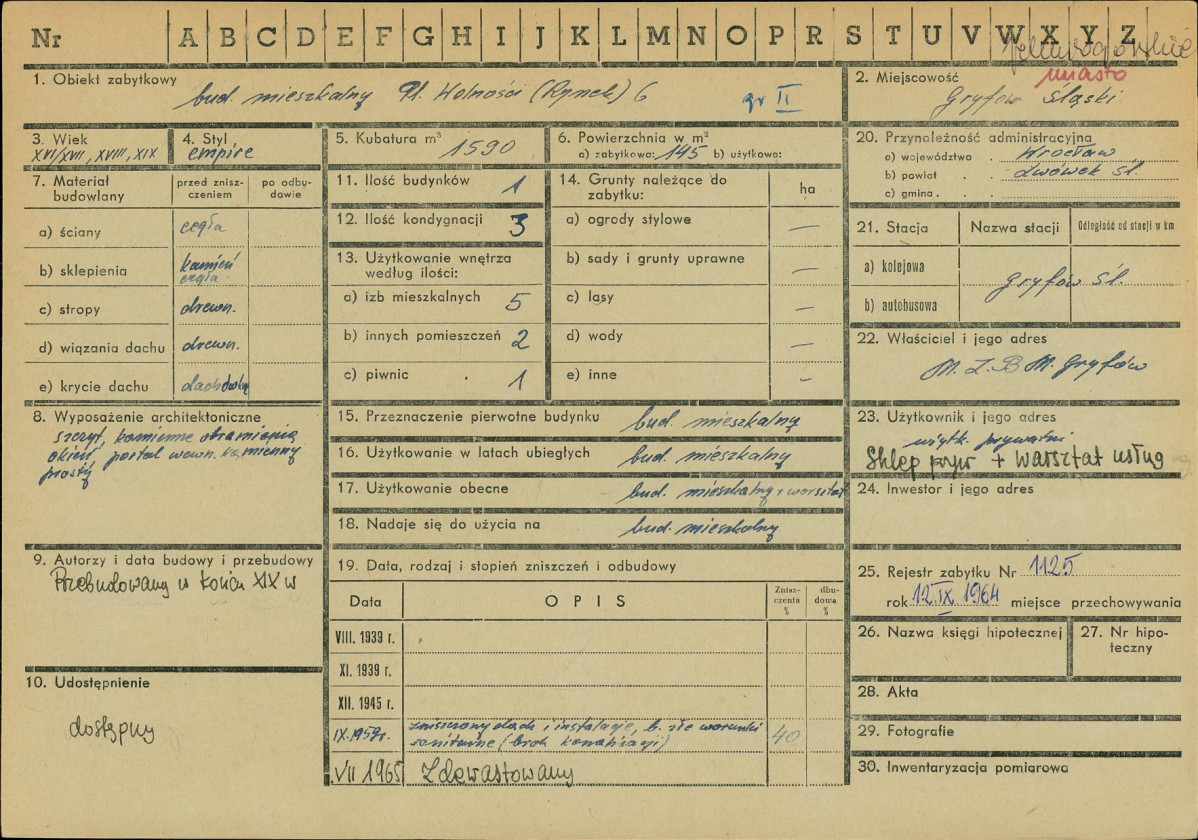 Nr A B C D E F G H I J K L M N O P R S T U V W X Y Z
miasto
1. Obiekt zabytkowy
bud. mieszkalny Pl. Wolności (Rynek) 6 gr II
2. Miejscowość
Gryfów Śląski
3. Wiek
XVI/XVII, XVIII, XIX
4. Styl
empire
5. Kubatura m³
1590
6. Powierzchnia w m²
a) zabytkowa: 145 b) użytkowa:
20. Przynależność administracyjna
a) województwo . Wrocław
b) powiat . . Lwówek Śl.
c) gmina . .
7. Materiał budowlany
przed znisz-
czeniem
po odbu-
dowie
a) ściany cegła
b) sklepienia kamień
cegła
c) stropy drewn.
d) wiązania dachu drewn.
e) krycie dachu dachówka
11. Ilość budynków 1
12. Ilość kondygnacji 3
13. Użytkowanie wnętrza
według ilości:
a) izb mieszkalnych 5
b) innych pomieszczeń 2
c) piwnic . 1
14. Grunty należące do
zabytku:
ha
a) ogrody stylowe —
b) sady i grunty uprawne —
c) lasy —
d) wody —
e) inne –
21. Stacja
Nazwa stacji
Odległość od stacji w km
a) kolejowa
Gryfów Śl.
b) autobusowa
22. Właściciel i jego adres
M.Z.B.M. Gryfów
8. Wyposażenie architektoniczne
szczyt, kamienne obramienia
okien, portal wewn. kamienny
prosty
15. Przeznaczenie pierwotne budynku bud. mieszkalny
16. Użytkowanie w latach ubiegłych bud. mieszkalny
17. Użytkowanie obecne bud. mieszkalny + warsztat
18. Nadaje się do użycia na bud. mieszkalny
23. Użytkownik i jego adres
użytk. prywatni
Sklep pryw + warsztat usług
24. Inwestor i jego adres
9. Autorzy i data budowy i przebudowy
Przebudowany w końcu XIX w
19. Data, rodzaj i stopień zniszczeń i odbudowy
Data
OPIS
Znisz-
czenia
%
dbu-
dowa
%
VIII. 1939 r.
XI. 1939 r.
XII. 1945 r.
IX. 1959r. zniszczony dach i instalacje, b. złe warunki
sanitarne (brak kanalizacji) 40
VII 1965 Zdewastowany
25. Rejestr zabytku Nr 1125
rok 12.IX 1964 miejsce przechowywania
26. Nazwa księgi hipotecznej
27. Nr hipo-
teczny
10. Udostępnienie
dostępny
28. Akta
29. Fotografie
30. Inwentaryzacja pomiarowa